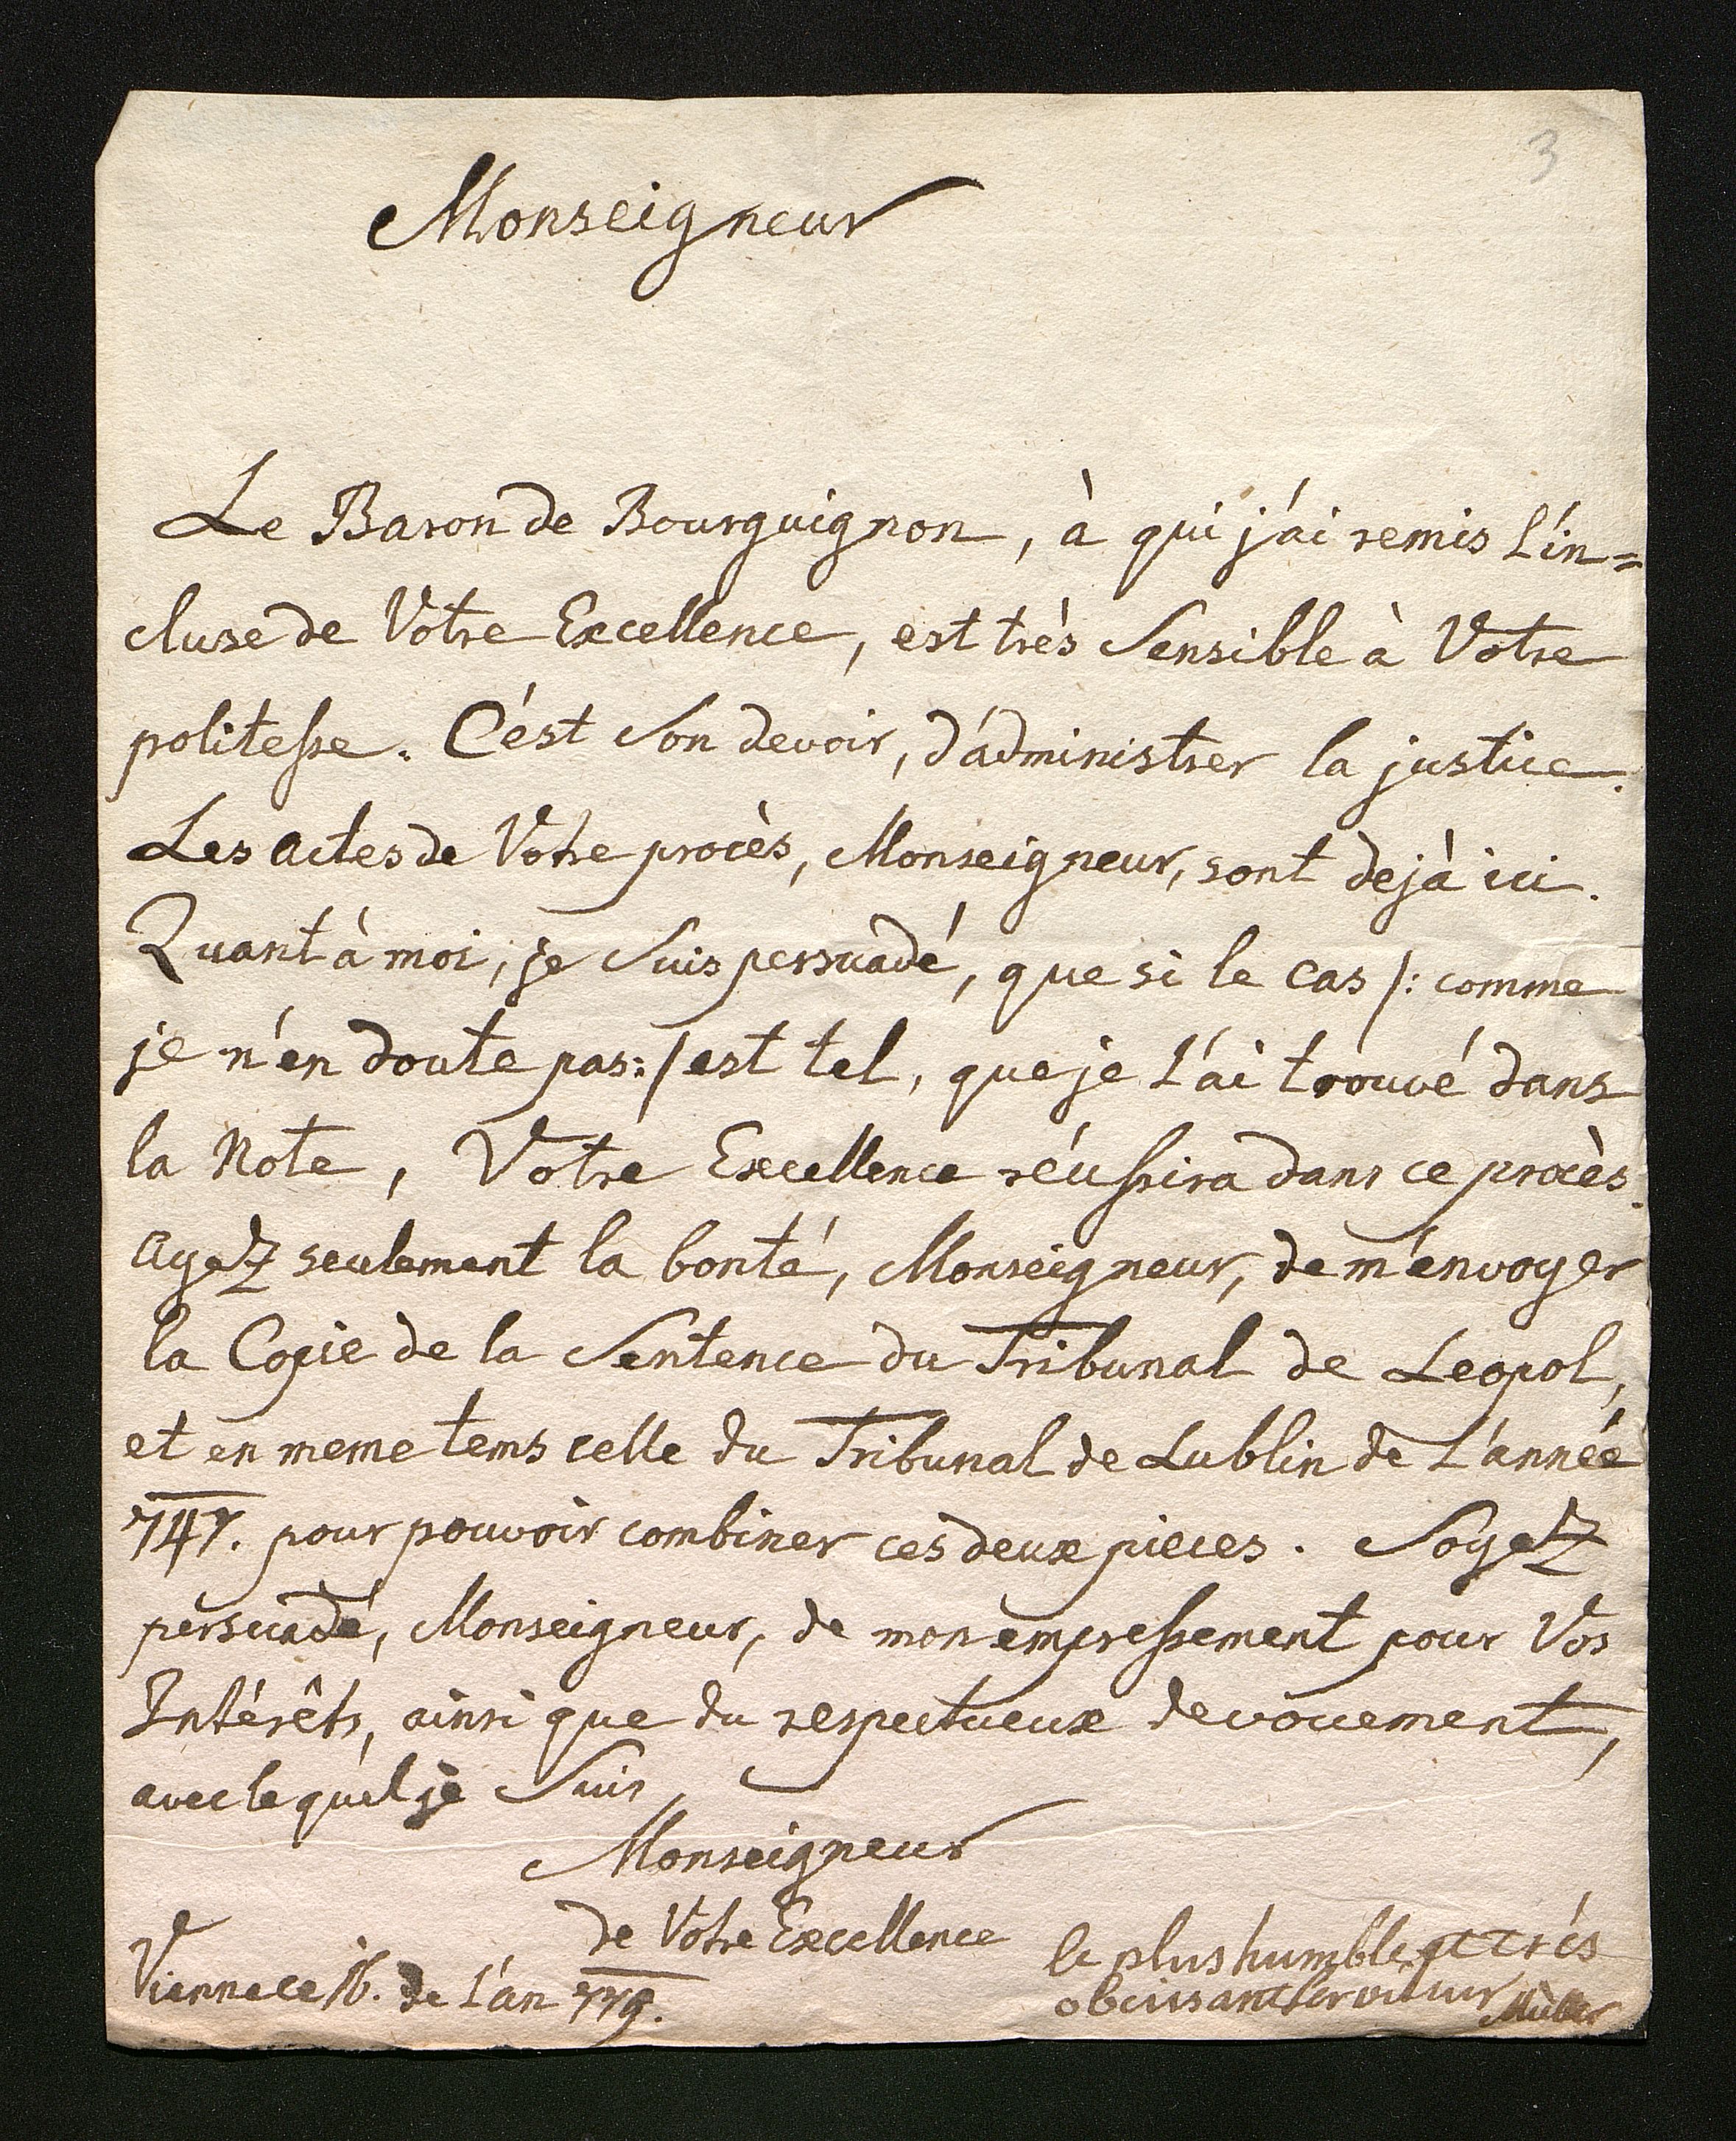 3
Monseigneur
Le Baron de Bourguignon, à qui j'ai remis l'in=
cluse de Votre Excellence, est très Sensible à Votre
politesse. C'est Son devoir, d'administrer la justice.
Les actes de Votre procès, Monseigneur, sont dejà ici.
Quant à moi, je Suis persuadé, que si le cas /: comme
je n'en doute pas :/ est tel, que je l'ai trouvé dans
la Note, Votre Excellence réussira dans ce procès.
ayez seulement la bonté, Monseigneur, de m'envoyer
la Copie de la Sentence du Tribunal de Leopol,
et en meme tems celle du Tribunal de Lublin de L'année
747. pour pouvoir combiner ces deux pieces. Soyez
persuadé, Monseigneur, de mon empressement pour Vos
Intérêts, ainsi que du respectueux devouement,
avec le quel je Suis,
Monseigneur
de Votre Excellence
Vienne ce 16. de L'an 779.
le plus humble et très
obeissant Serviteur Müller